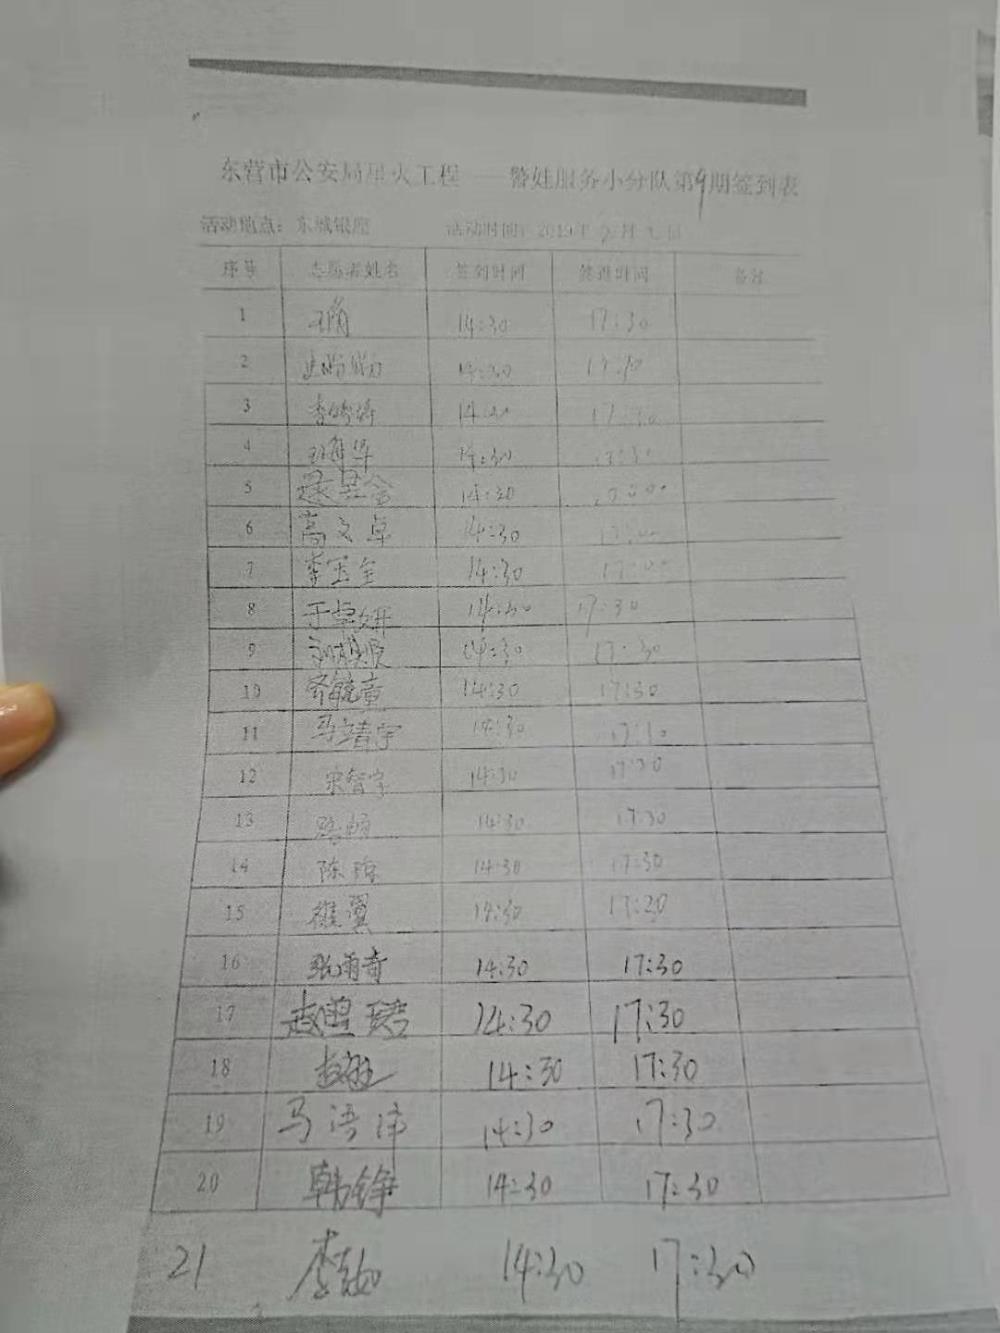 东营市公安局星火工程——警娃服务小分队第9期签到表
活动地点：东城银座 活动时间：2019年 月 日
序号 志愿者姓名 签到时间 签退时间 备注
1 14:30 17:30
2 14:30
3 李 14:30 17:30
4 14:30 17:30
5 14:30 17:00
6 高文卓 14:30 17:00
7 李玉全 14:30 17:00
8 于卓妍 14:30 17:30
9 14:30 17:30
10 齐毓童 14:30 17:30
11 马靖宇 14:30 17:30
12 宋智宇 14:30 17:30
13 路畅 14:30 17:30
14 陈 14:30 17:30
15 翼 14:30 17:20
16 张雨奇 14:30 17:30
17 赵 14:30 17:30
18 14:30 17:30
19 马语 14:30 17:30
20 韩铮 14:30 17:30
21 李 14:30 17:30